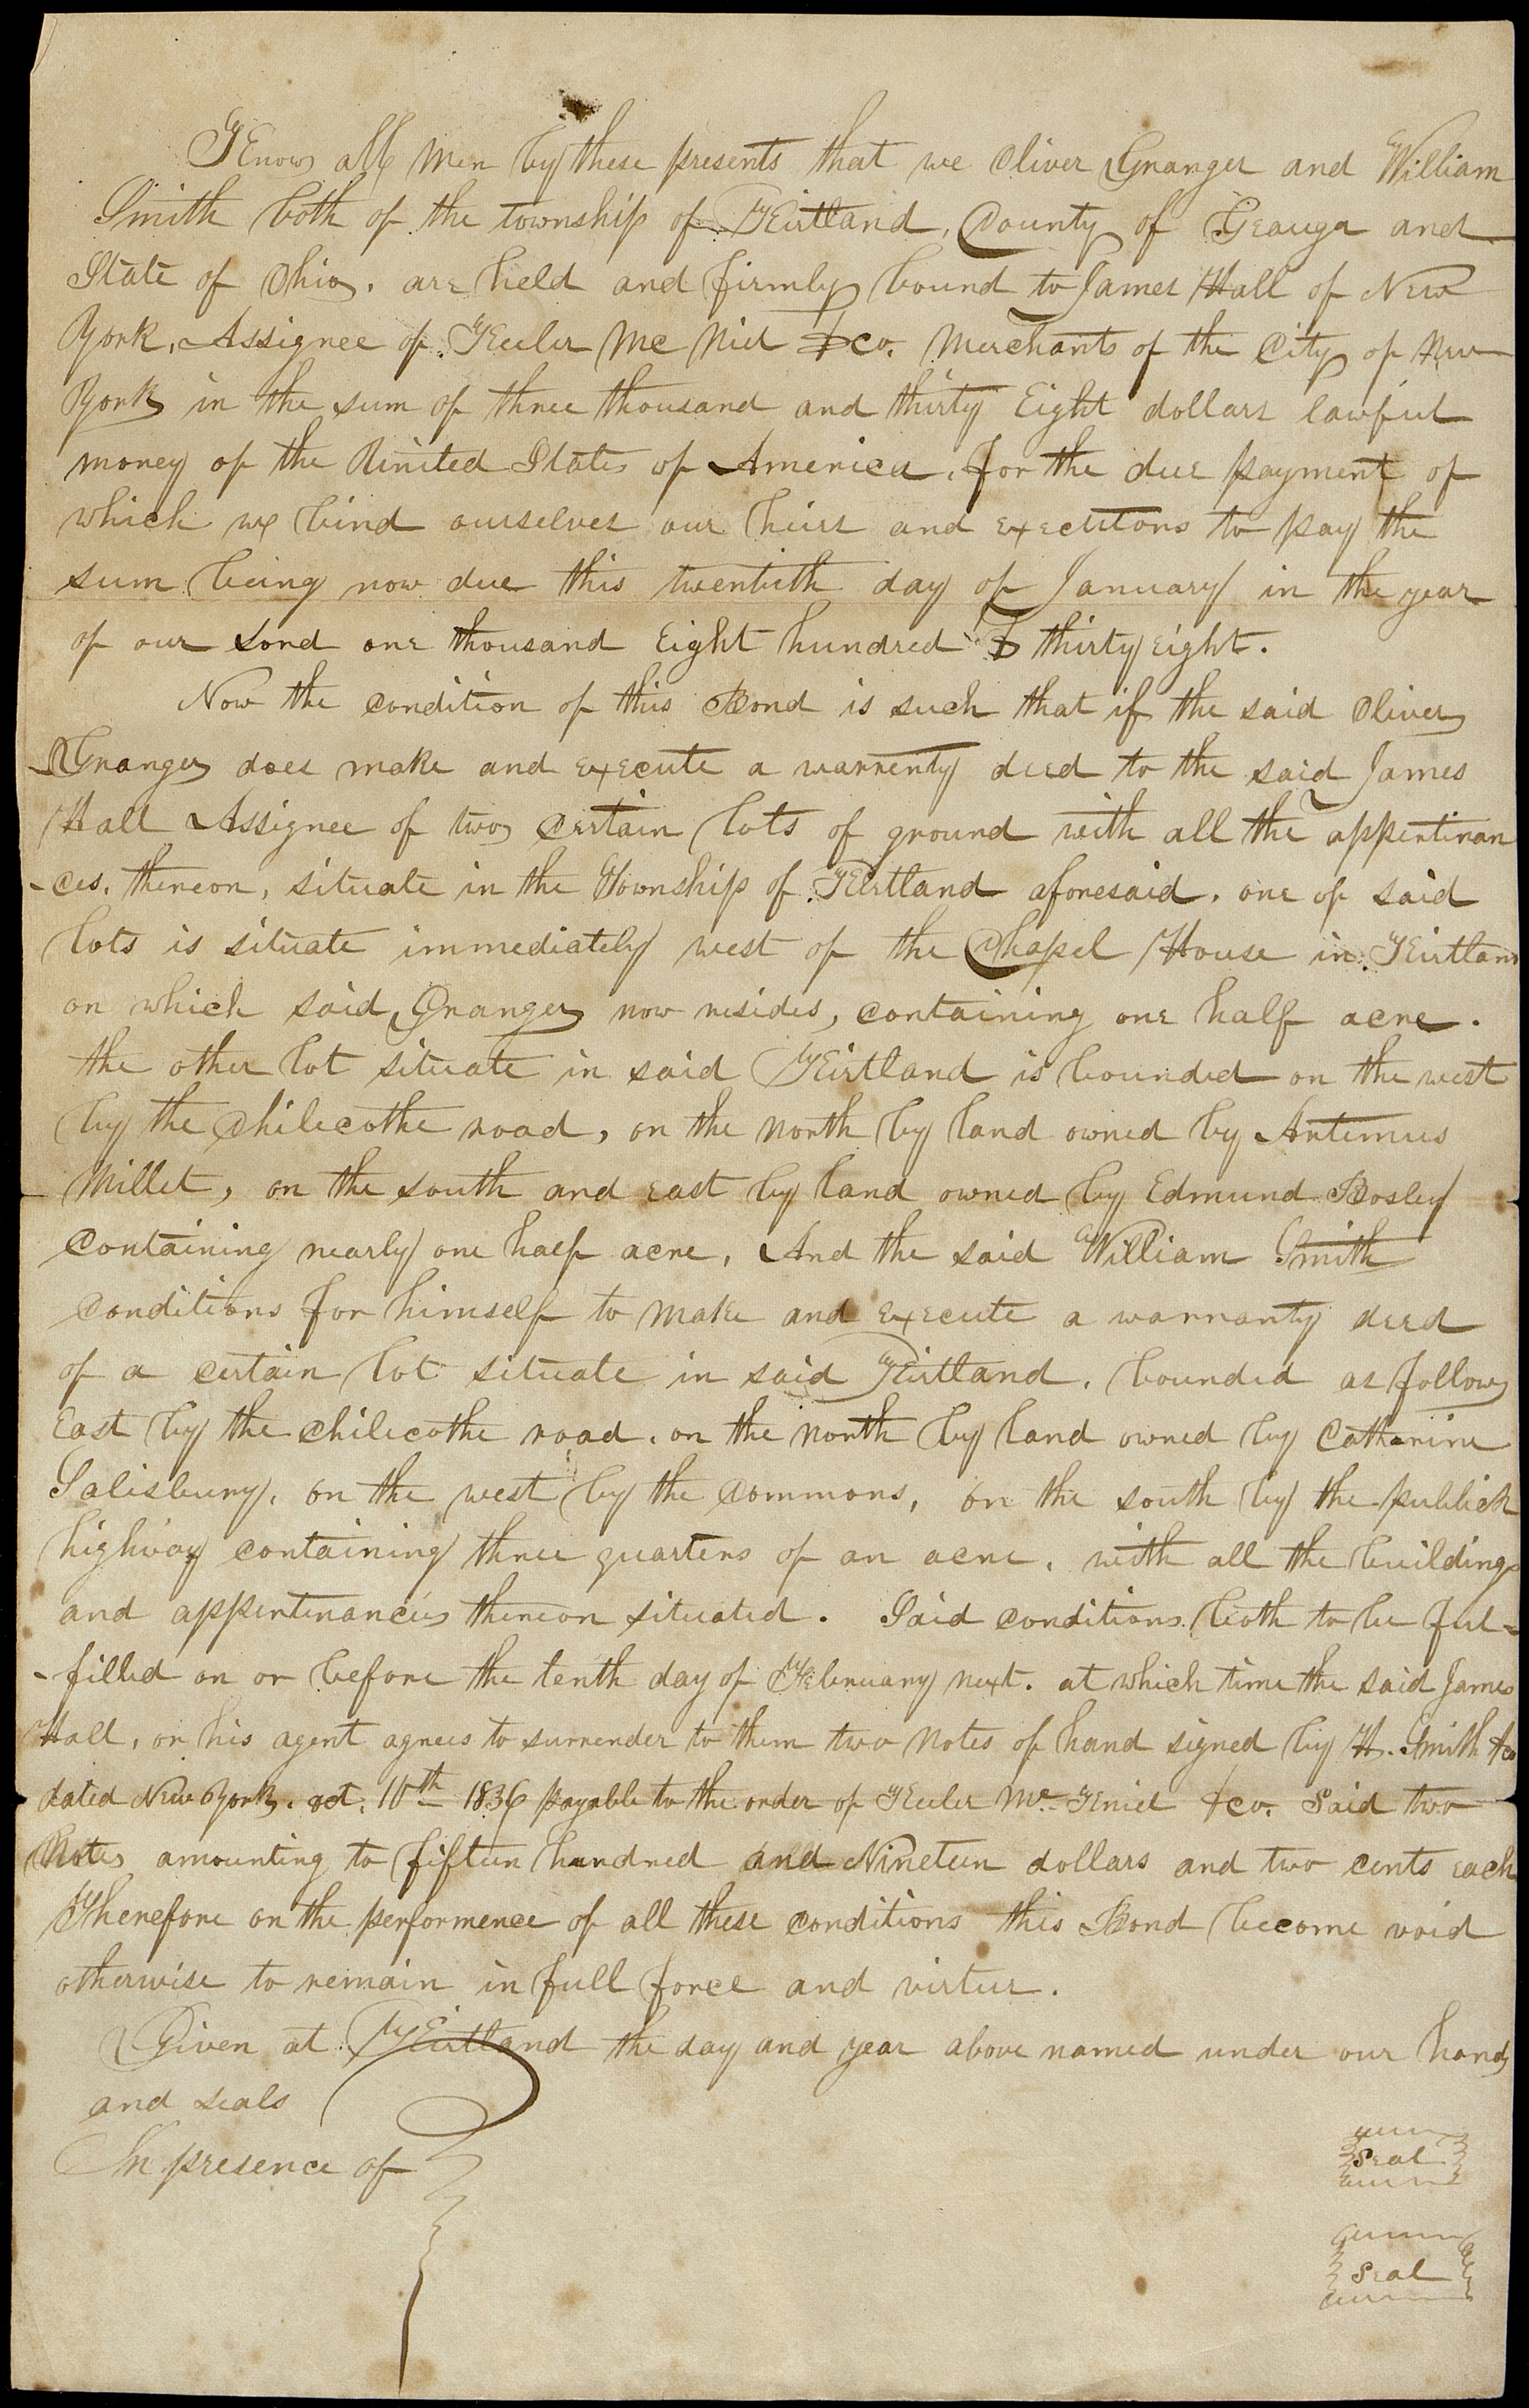 Know all men by these presents that we Oliver Granger and William
Smith both of the township of Kirtland, County of Geauga and
State of Ohio. are held and firmly bound to James Hall of New
York, Assignee of Keeler Mc Niel & co. Merchants of the City of New
York in the sum of three thousand and thirty Eight dollars lawful
money of the United States of America, for the due payment of
which we bind ourselves our heirs and executors to pay the
sum being now due this twentieth day of January in the year
of our Lord one thousand Eight hundred & thirty eight.
Now the condition of this Bond is such that if the said Oliver
Granger does make and execute a warrenty deed to the said James
Hall Assignee of two certain lots of ground with all the appertinan
-ces, thereon, situate in the Township of Kirtland aforesaid. one of said
lots is situate immediately west of the Chapel House in Kirtland
on which said Granger now resides, containing one half acre.
the other lot situate in said Kirtland is bounded on the west
by the Chilecothe road, on the north by land owned by Artemus
Millet, on the south and east by land owned by Edmund Bosley
containing nearly one half acre, And the said William Smith
conditions for himself to make and execute a warranty deed
of a certain lot situate in said Kirtland. bounded as follows
East by the Chilecothe road. on the north by land owned by Catharine
Salisbury, on the west by the commons, on the south by the publick
highway containing three quarters of an acre. with all the buildings
and appertenancies thereon situated. Said conditions both to be ful-
-filled on or before the tenth day of February next. at which time the said James
Hall, or his agent agrees to surrender to them two notes of hand signed by H. Smith & co
dated New York. oct. 10th 1836 payable to the order of Keeler Mc Kniel & co. Said two
Notes amounting to fifteen hundred and Nineteen dollars and two cents each
Therefore on the performence of all these conditions this Bond become void
otherwise to remain in full force and virtue.
Given at Kirtland the day and year above named under our hands
and seals
In presence of
Seal
Seal